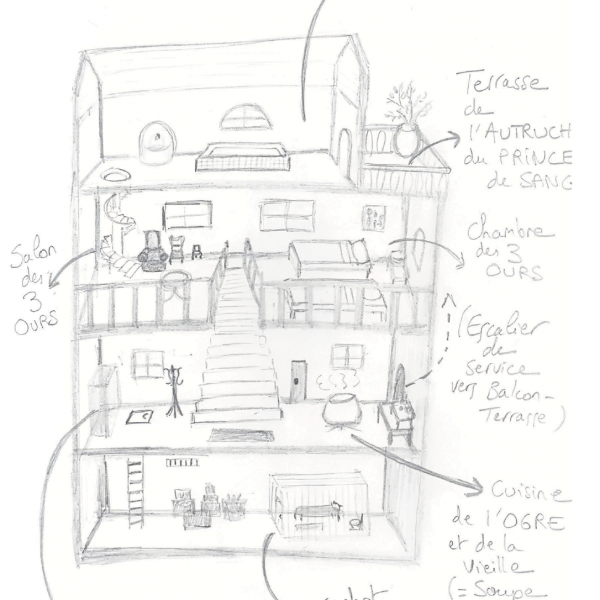 Terrasse
de
l'AUTRUCH
du PRINCE
de SANG
Salon
des
3
OURS
Chambre
des 3
OURS
(Escalier
de
Service
vers Balcon-
Terrasse)
Cuisine
de l'OGRE
et de la
Vieille
(= Soupe